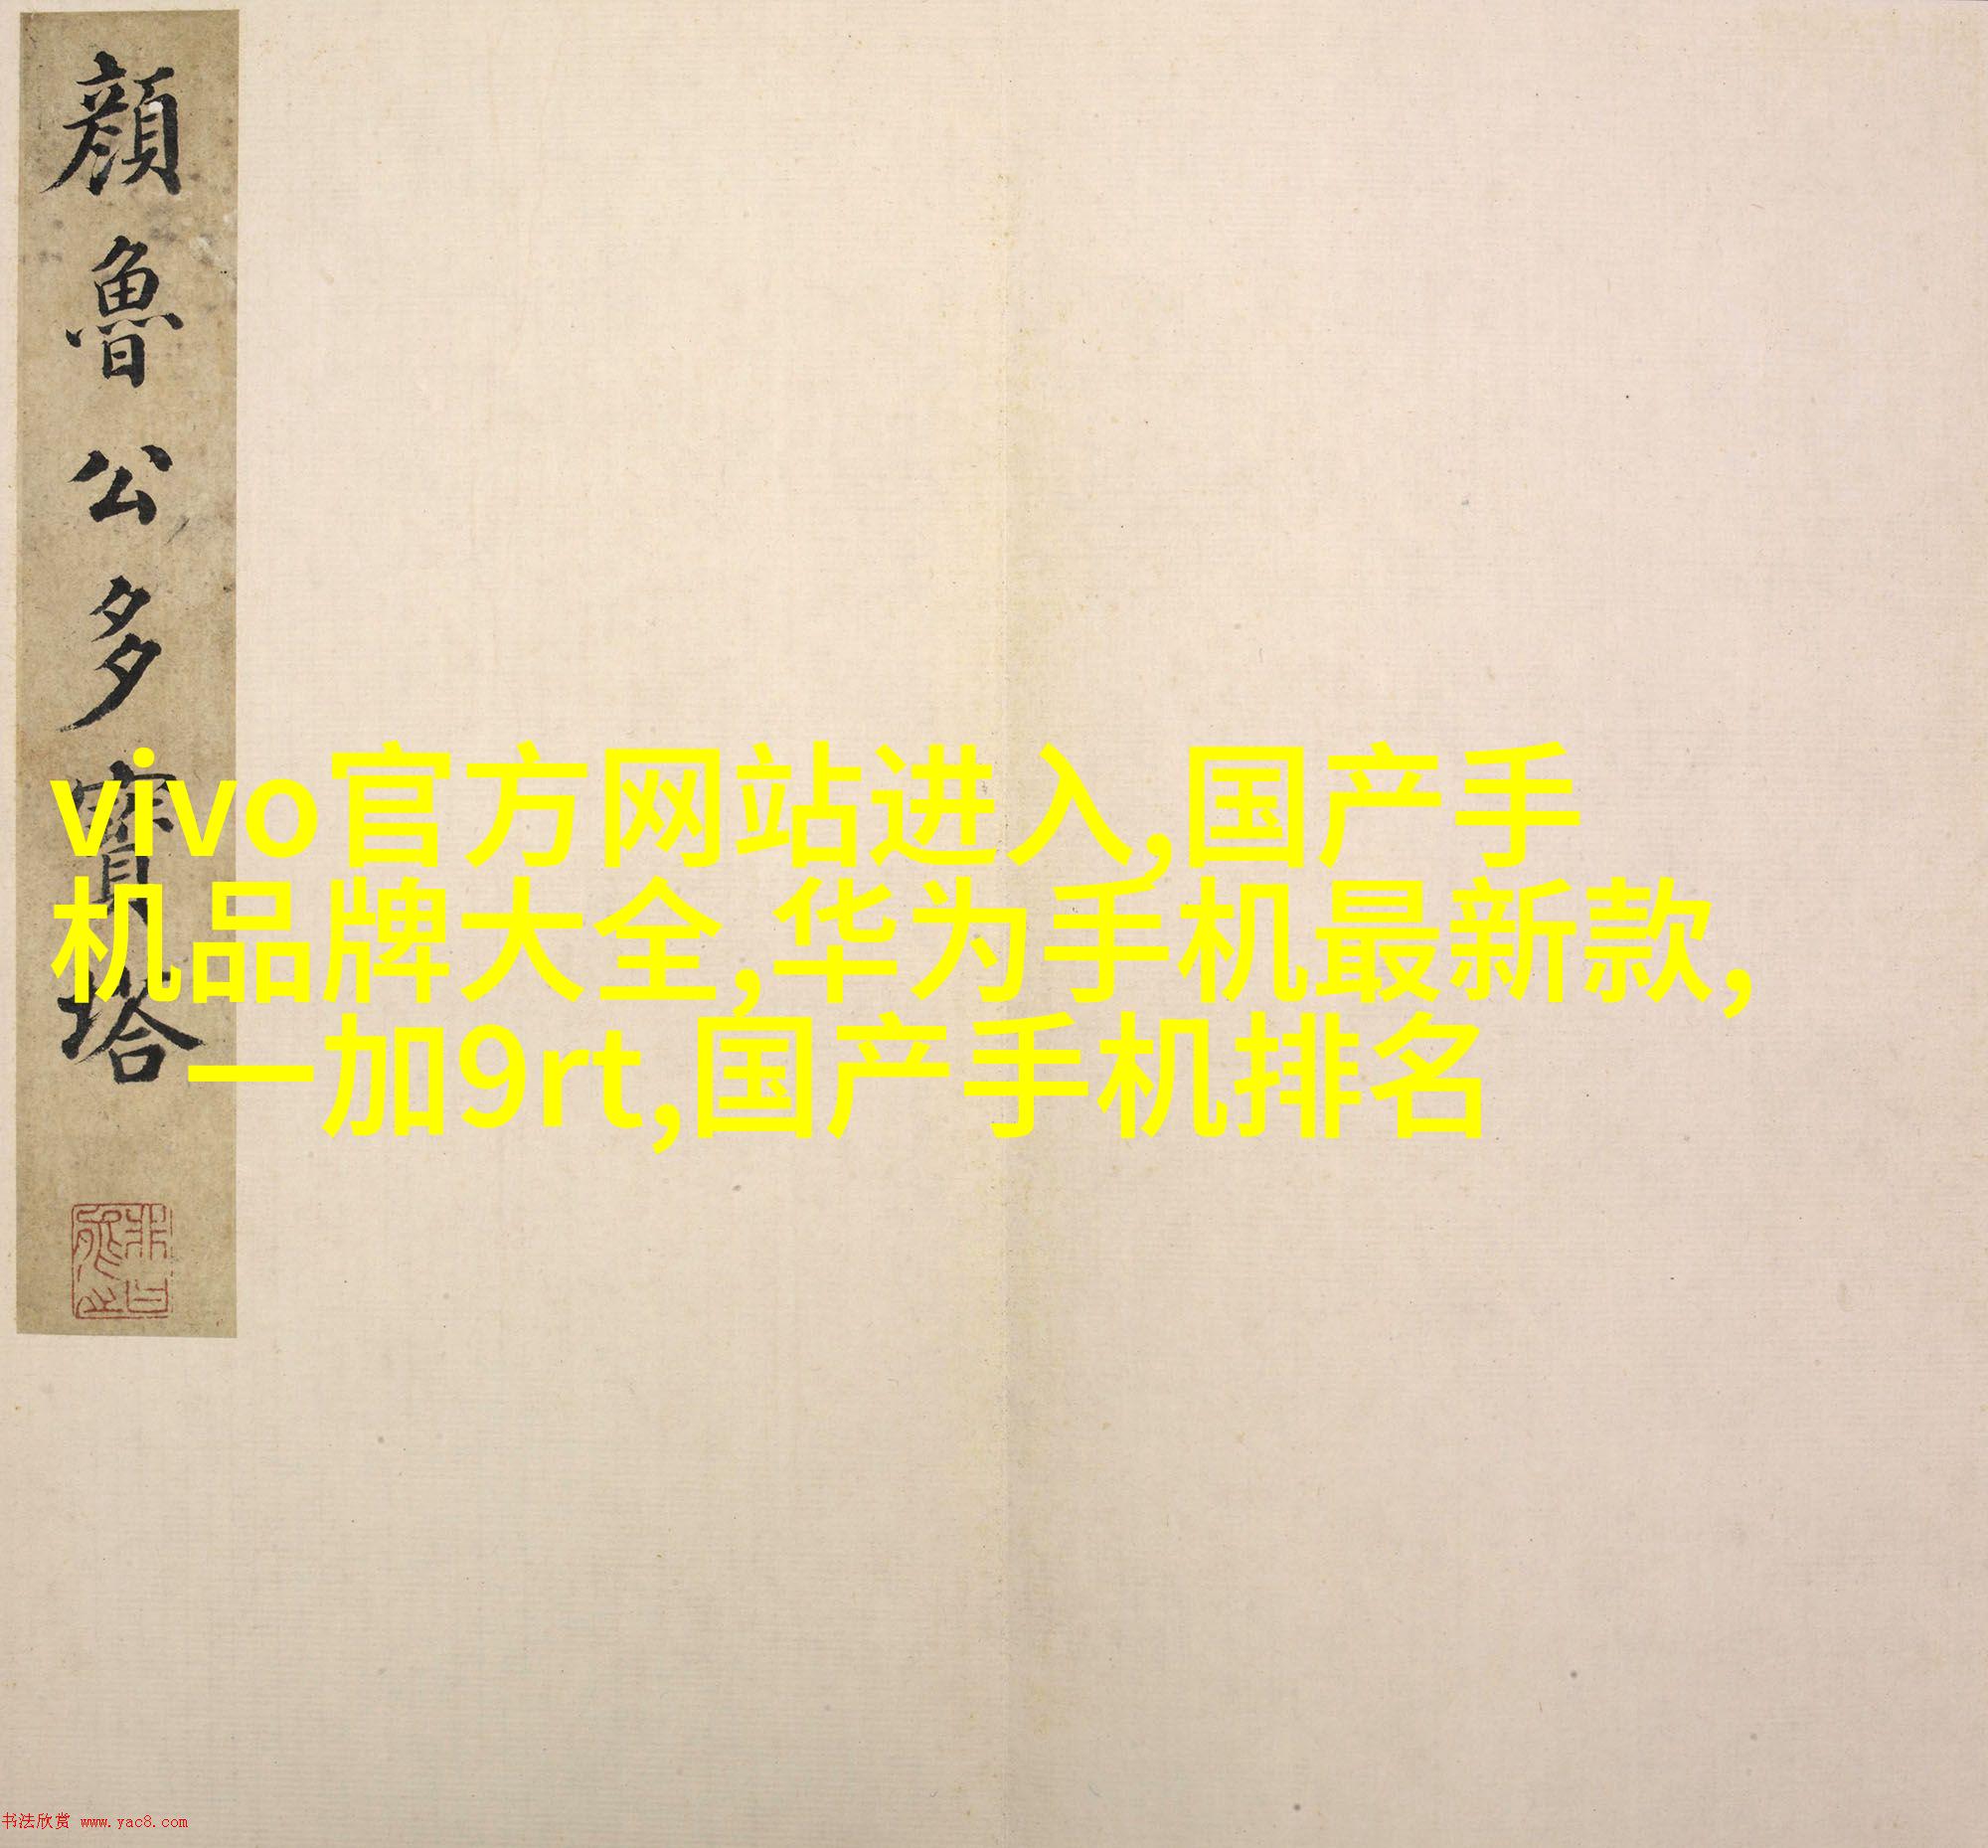 顔魯公多寳塔
vivo官方网站进入,国产手
机品牌大全,华为手机最新款,
一加9rt,国产手机排名
书法欣赏 www.yac8.com